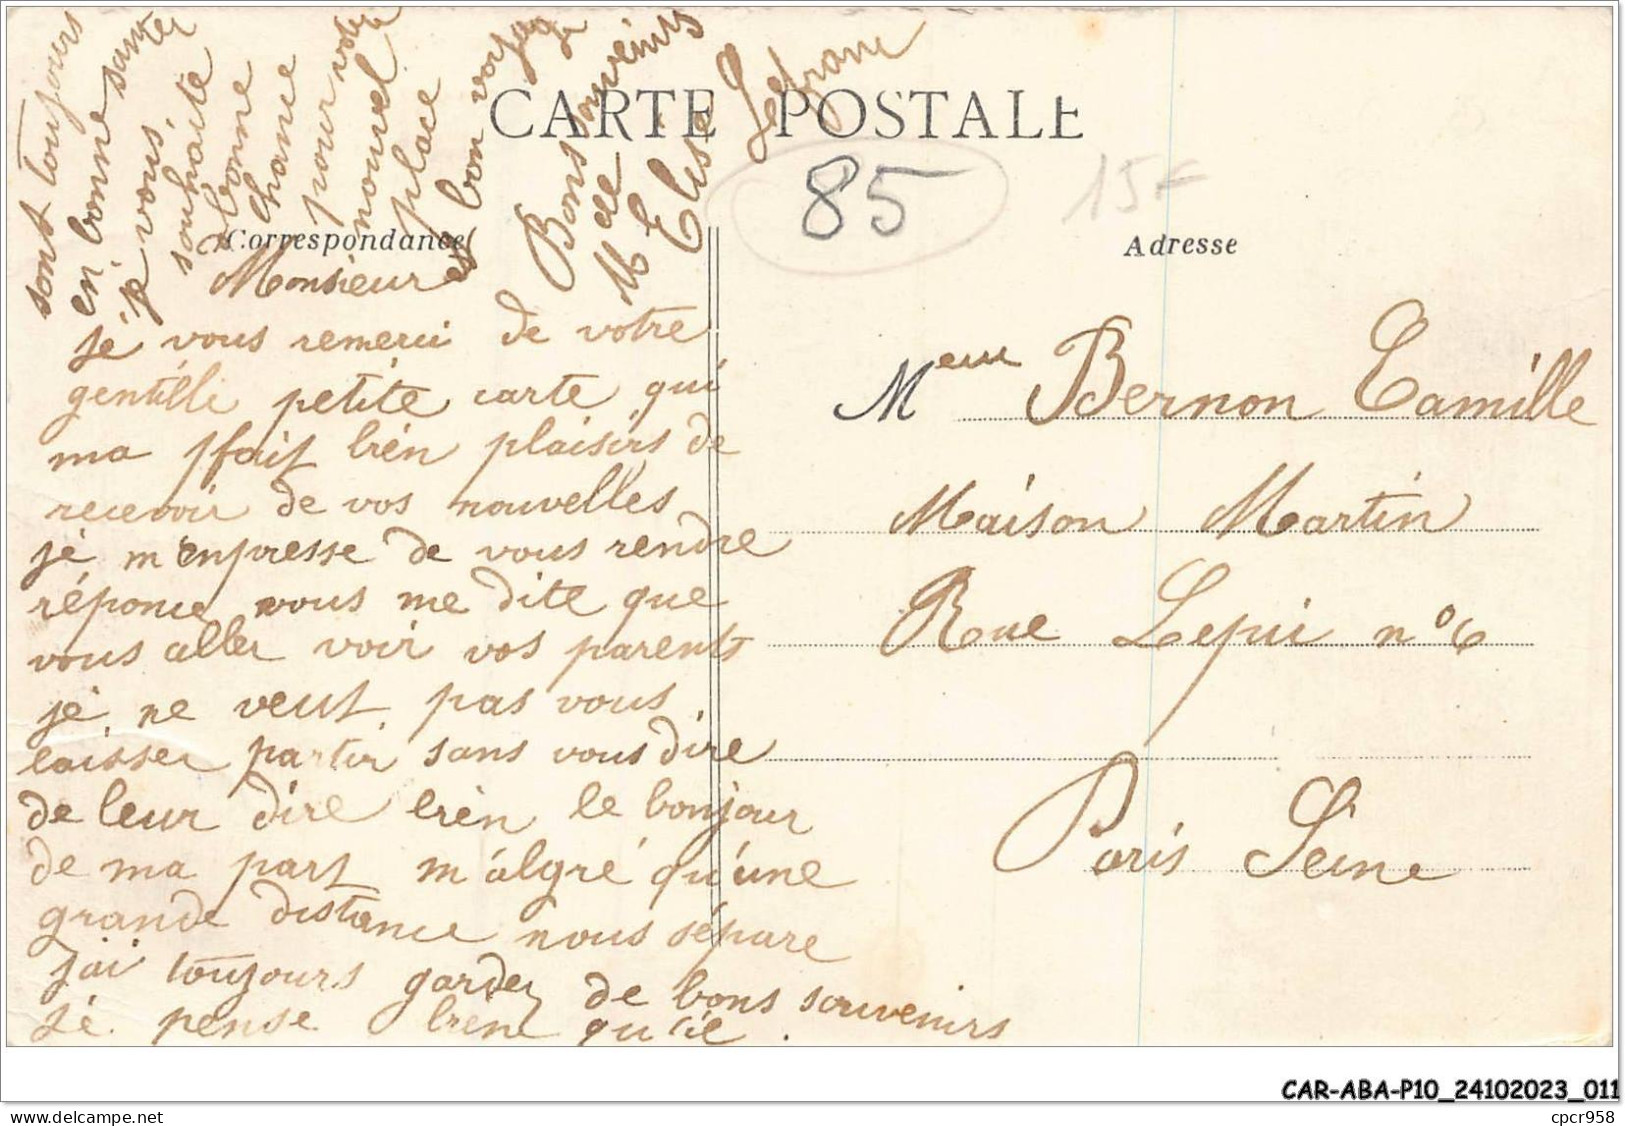 CARTE POSTALE
85
15F
Correspondance
Adresse
Monsieur
je vous remerci de votre
gentille petite carte qui
ma fait bien plaisirs de
recevoir de vos nouvelles
je m'enpresse de vous rendre
réponce vous me dite que
vous aller voir vos parents
je ne veut pas vous
laisser partir sans vous dire
de leur dire bien le bonjour
de ma part m'algré qu'une
grande distance nous sépare
j'ai toujours garder de bons souvenirs
je pense bien qu'ile
sont toujours
en bonne santer
je vous
souhaite
bonne
chance
pour votre
nouvel
place
et bon voyage
Bons souvenirs
de
M Elise Lefranc
Meur Bernon Camille
Maison Martin
Rue Lepic n° 6
Paris Seine
CAR-ABA-P10_24102023_011
cpcr958